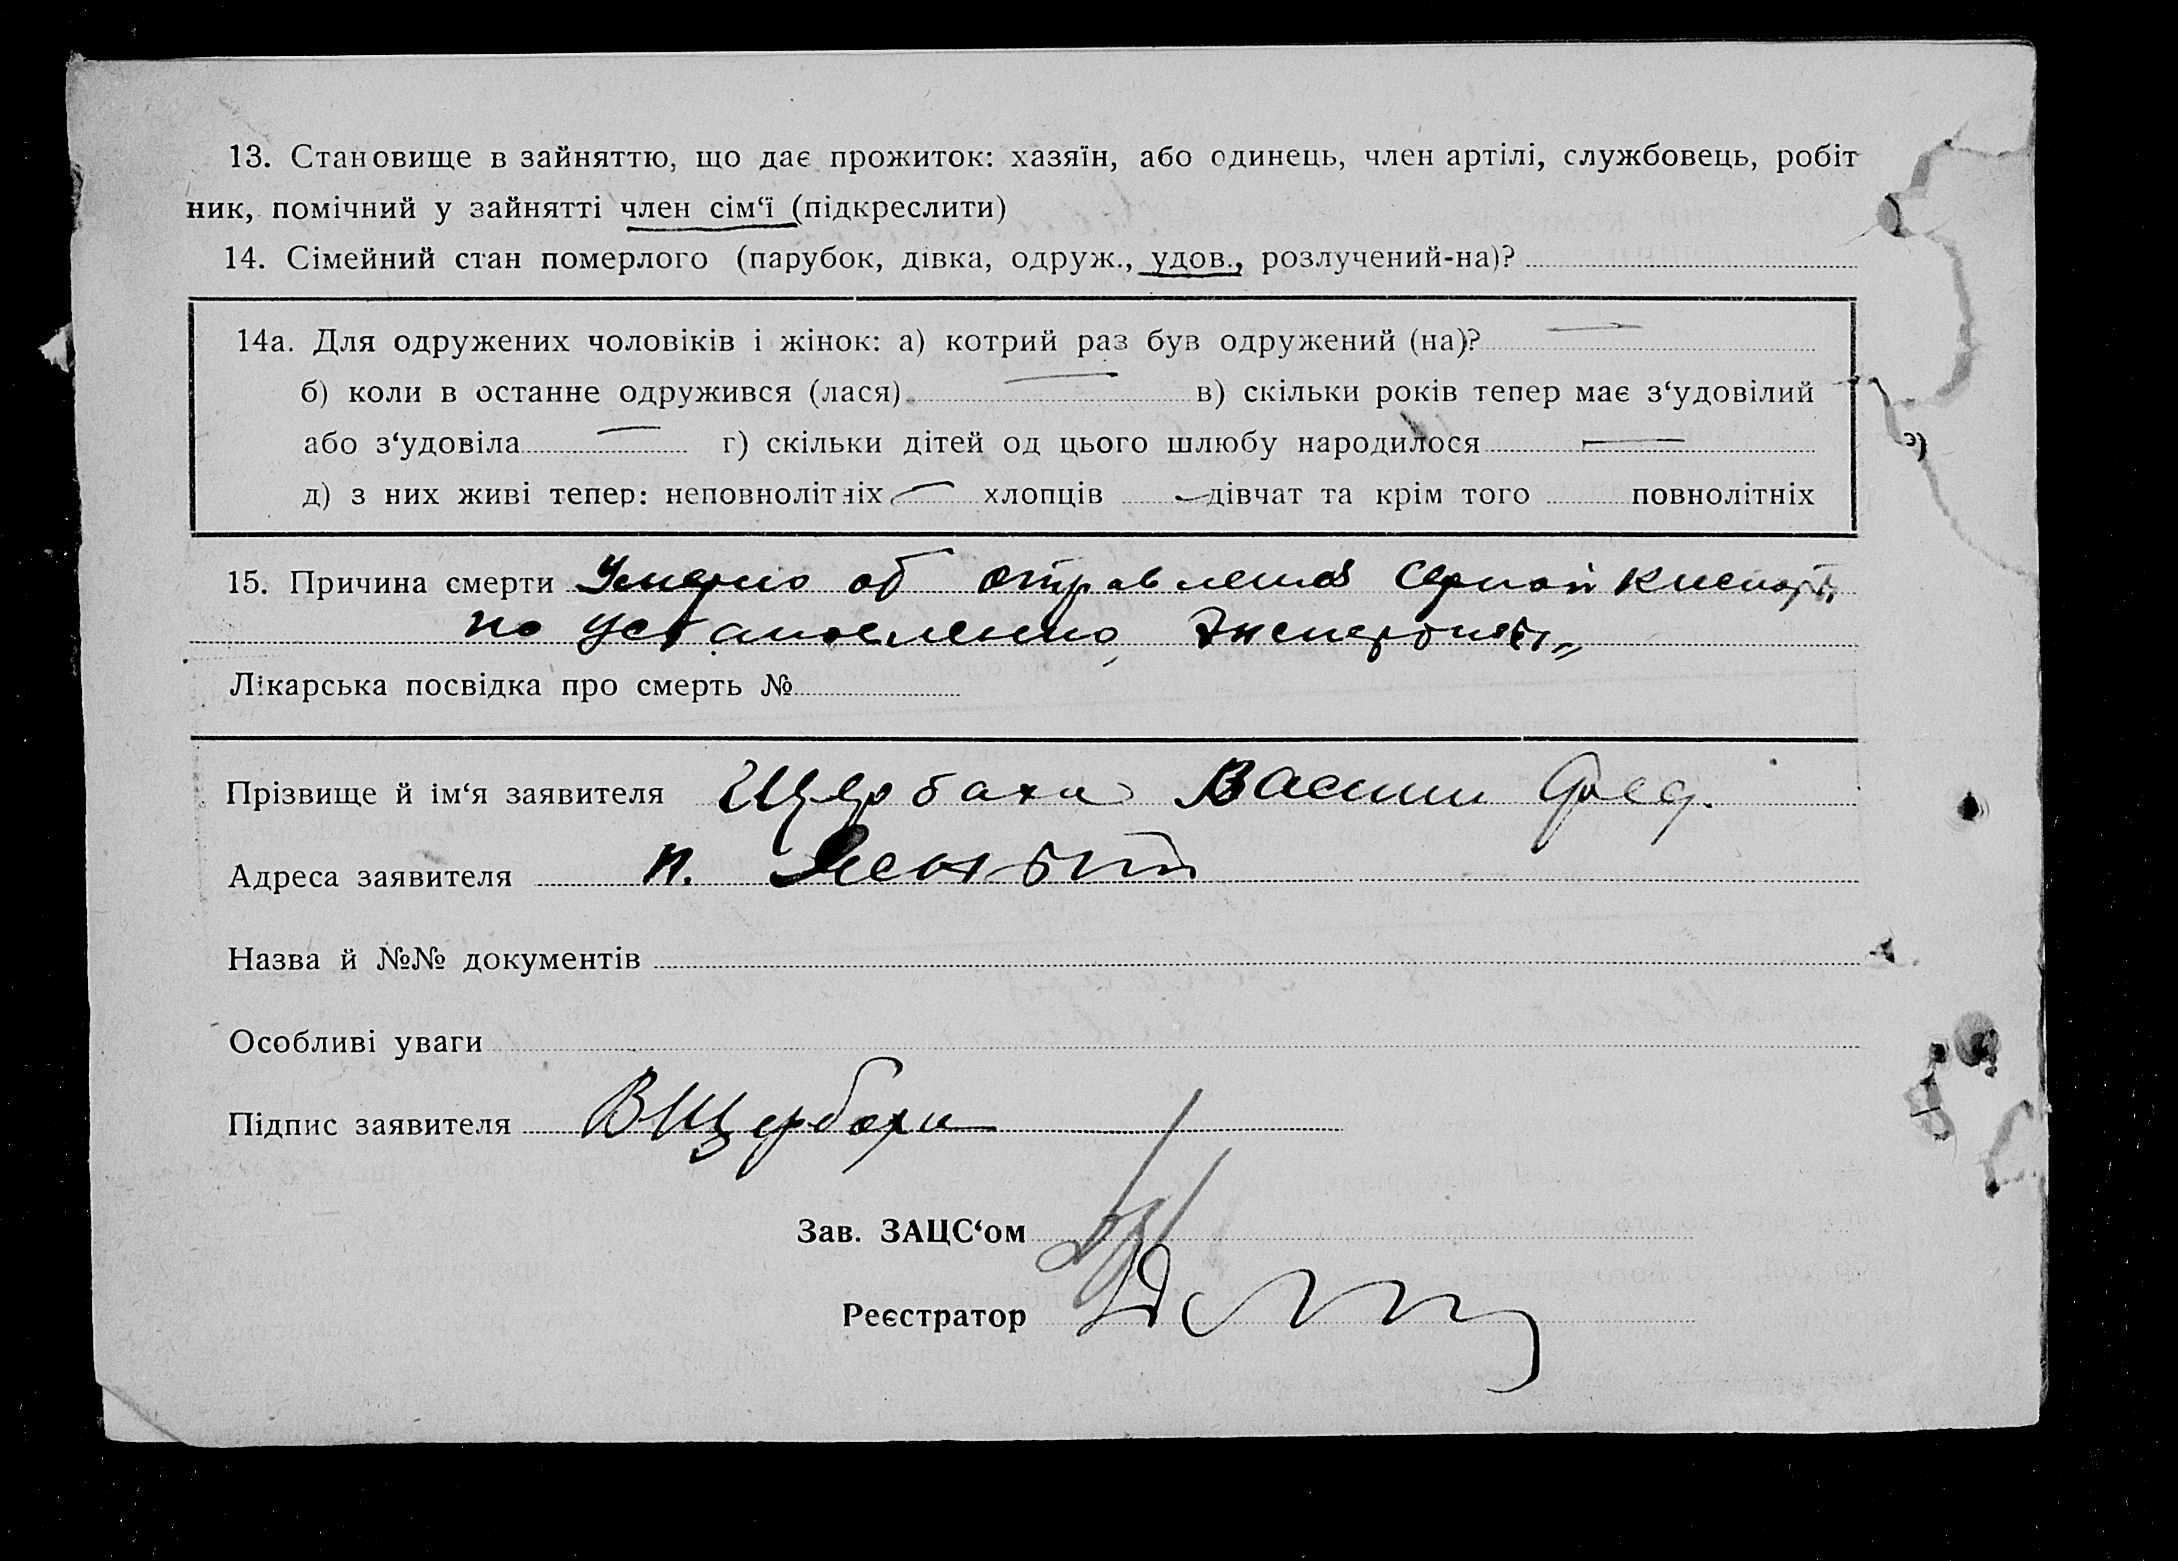 13. Становище в зайняттю, що дає прожиток: хазяїн, або одинець, член артілі, службовець, робіт
ник, помічний у зайнятті член сім‘ї (підкреслити)
14. Сімейний стан померлого (парубок, дівка, одруж., удов., розлучений-на)?
14а. Для одружених чоловіків і жінок: а) котрий раз був одружений (на)?
б) коли в останне одружився (лася) в) скільки років тепер має з‘удовілий
або з‘удовіла г) скільки дітей од цього шлюбу народилося
д) з них живі тепер: неповнолітніх хлопців дівчат та крім того повнолітніх
15. Причина смерти Умерло об отравления серной кислоты
по установлению
Лікарська посвідка про смерть №
Прізвище й ім‘я заявителя Щербаха Васили Фед.
Адреса заявителя п.
Назва й №№ документів
Особливі уваги
Підпис заявителя ВЩербаха
Зав. ЗАЦС‘ом
Реєстратор